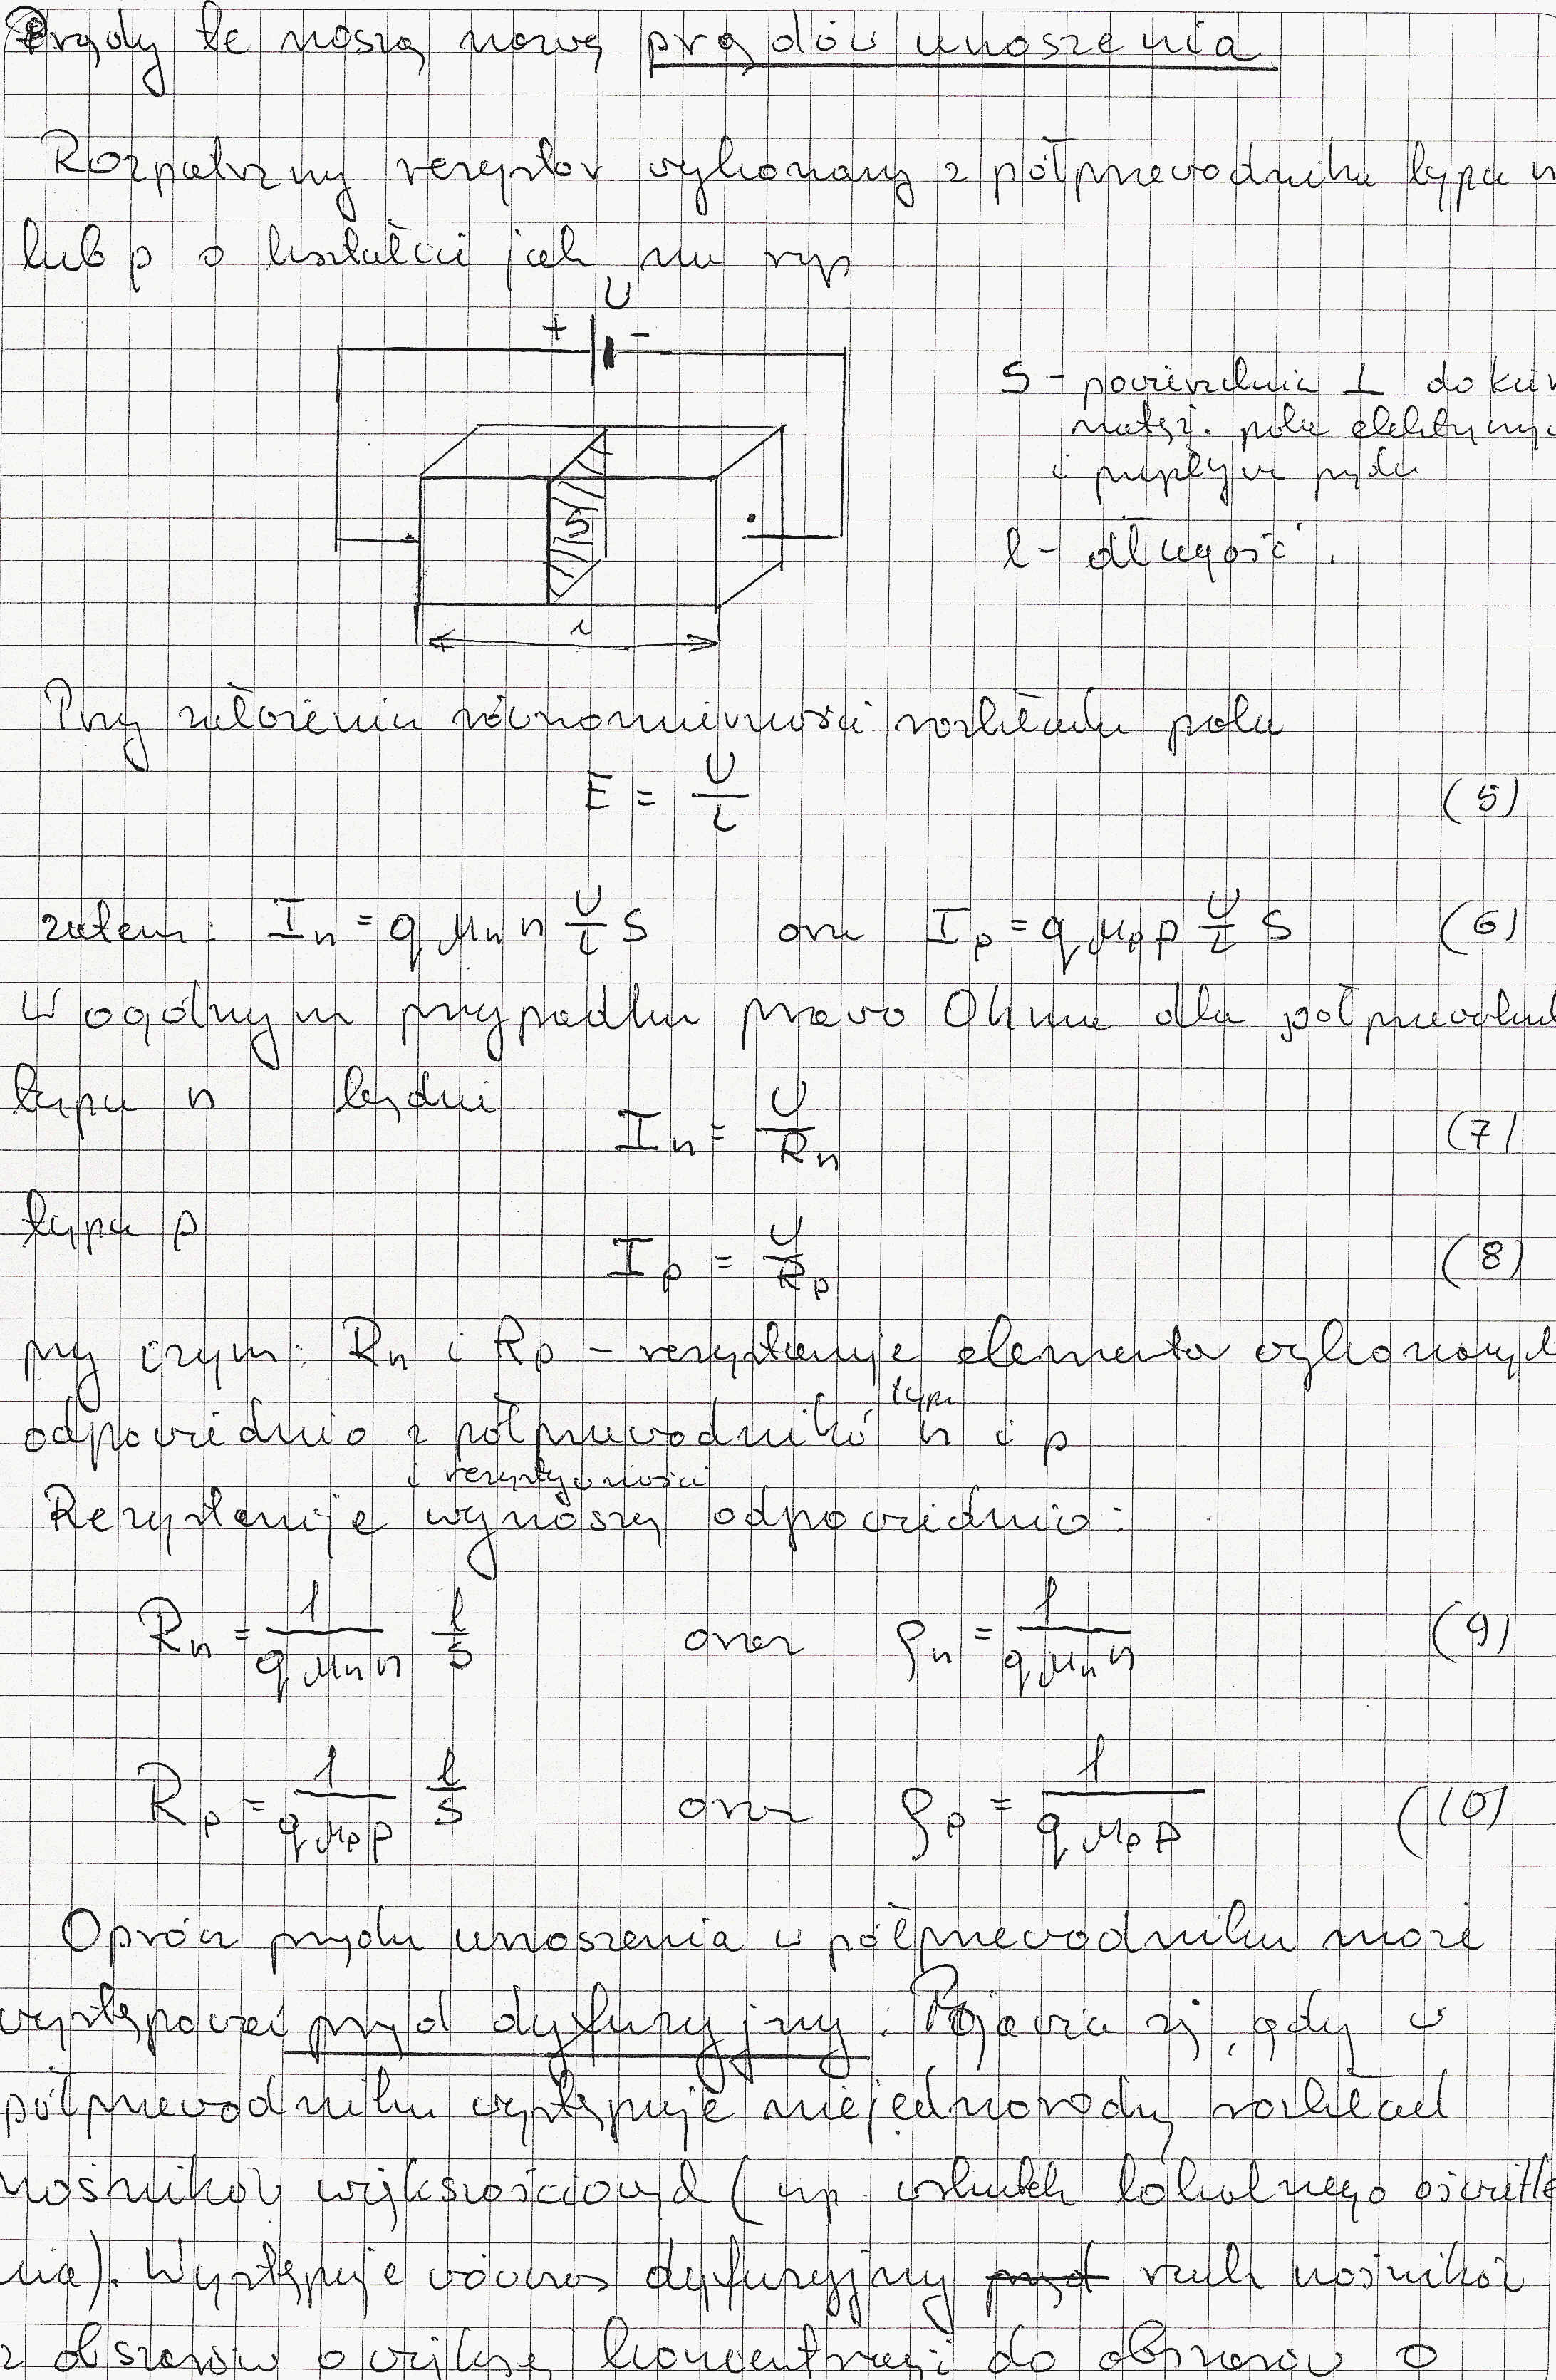 Prądy te noszą nazwę prądów unoszenia.
Rozpatrzmy rezystor wykonany z półprzewodnika typu n
lub p o kształcie jak na rys
U
+ -
S - powierzchnia ⊥ do kier
natęż. pola elektryczny
i przepływ prądu
S
l - długość.
l
Przy założeniu równomierności rozkładu pola
E = U/l (5)
zatem: In = q μn n U/l S oraz Ip = q μp p U/l S (6)
W ogólnym przypadku prawo Ohma dla półprzewodni
typu n będzie
In = U/Rn (7)
typu p
Ip = U/Rp (8)
przy czym: Rn i Rp - rezystancje elementów wykonanych
typu
odpowiednio z półprzewodników n i p
i rezystywności
Rezystancje wynoszą odpowiednio:
Rn = 1/(q μn n) l/S oraz ρn = 1/(q μn n) (9)
Rp = 1/(q μp p) l/S oraz ρp = 1/(q μp p) (10)
Oprócz prądu unoszenia w półprzewodniku może
występować prąd dyfuzyjny. Pojawia się, gdy w
półprzewodniku występuje niejednorodny rozkład
nośników większościowych (np. wskutek lokalnego oświetle
nia). Występuje wówczas dyfuzyjny prąd ruch nośników
z obszarów o większej koncentracji do obszarów o